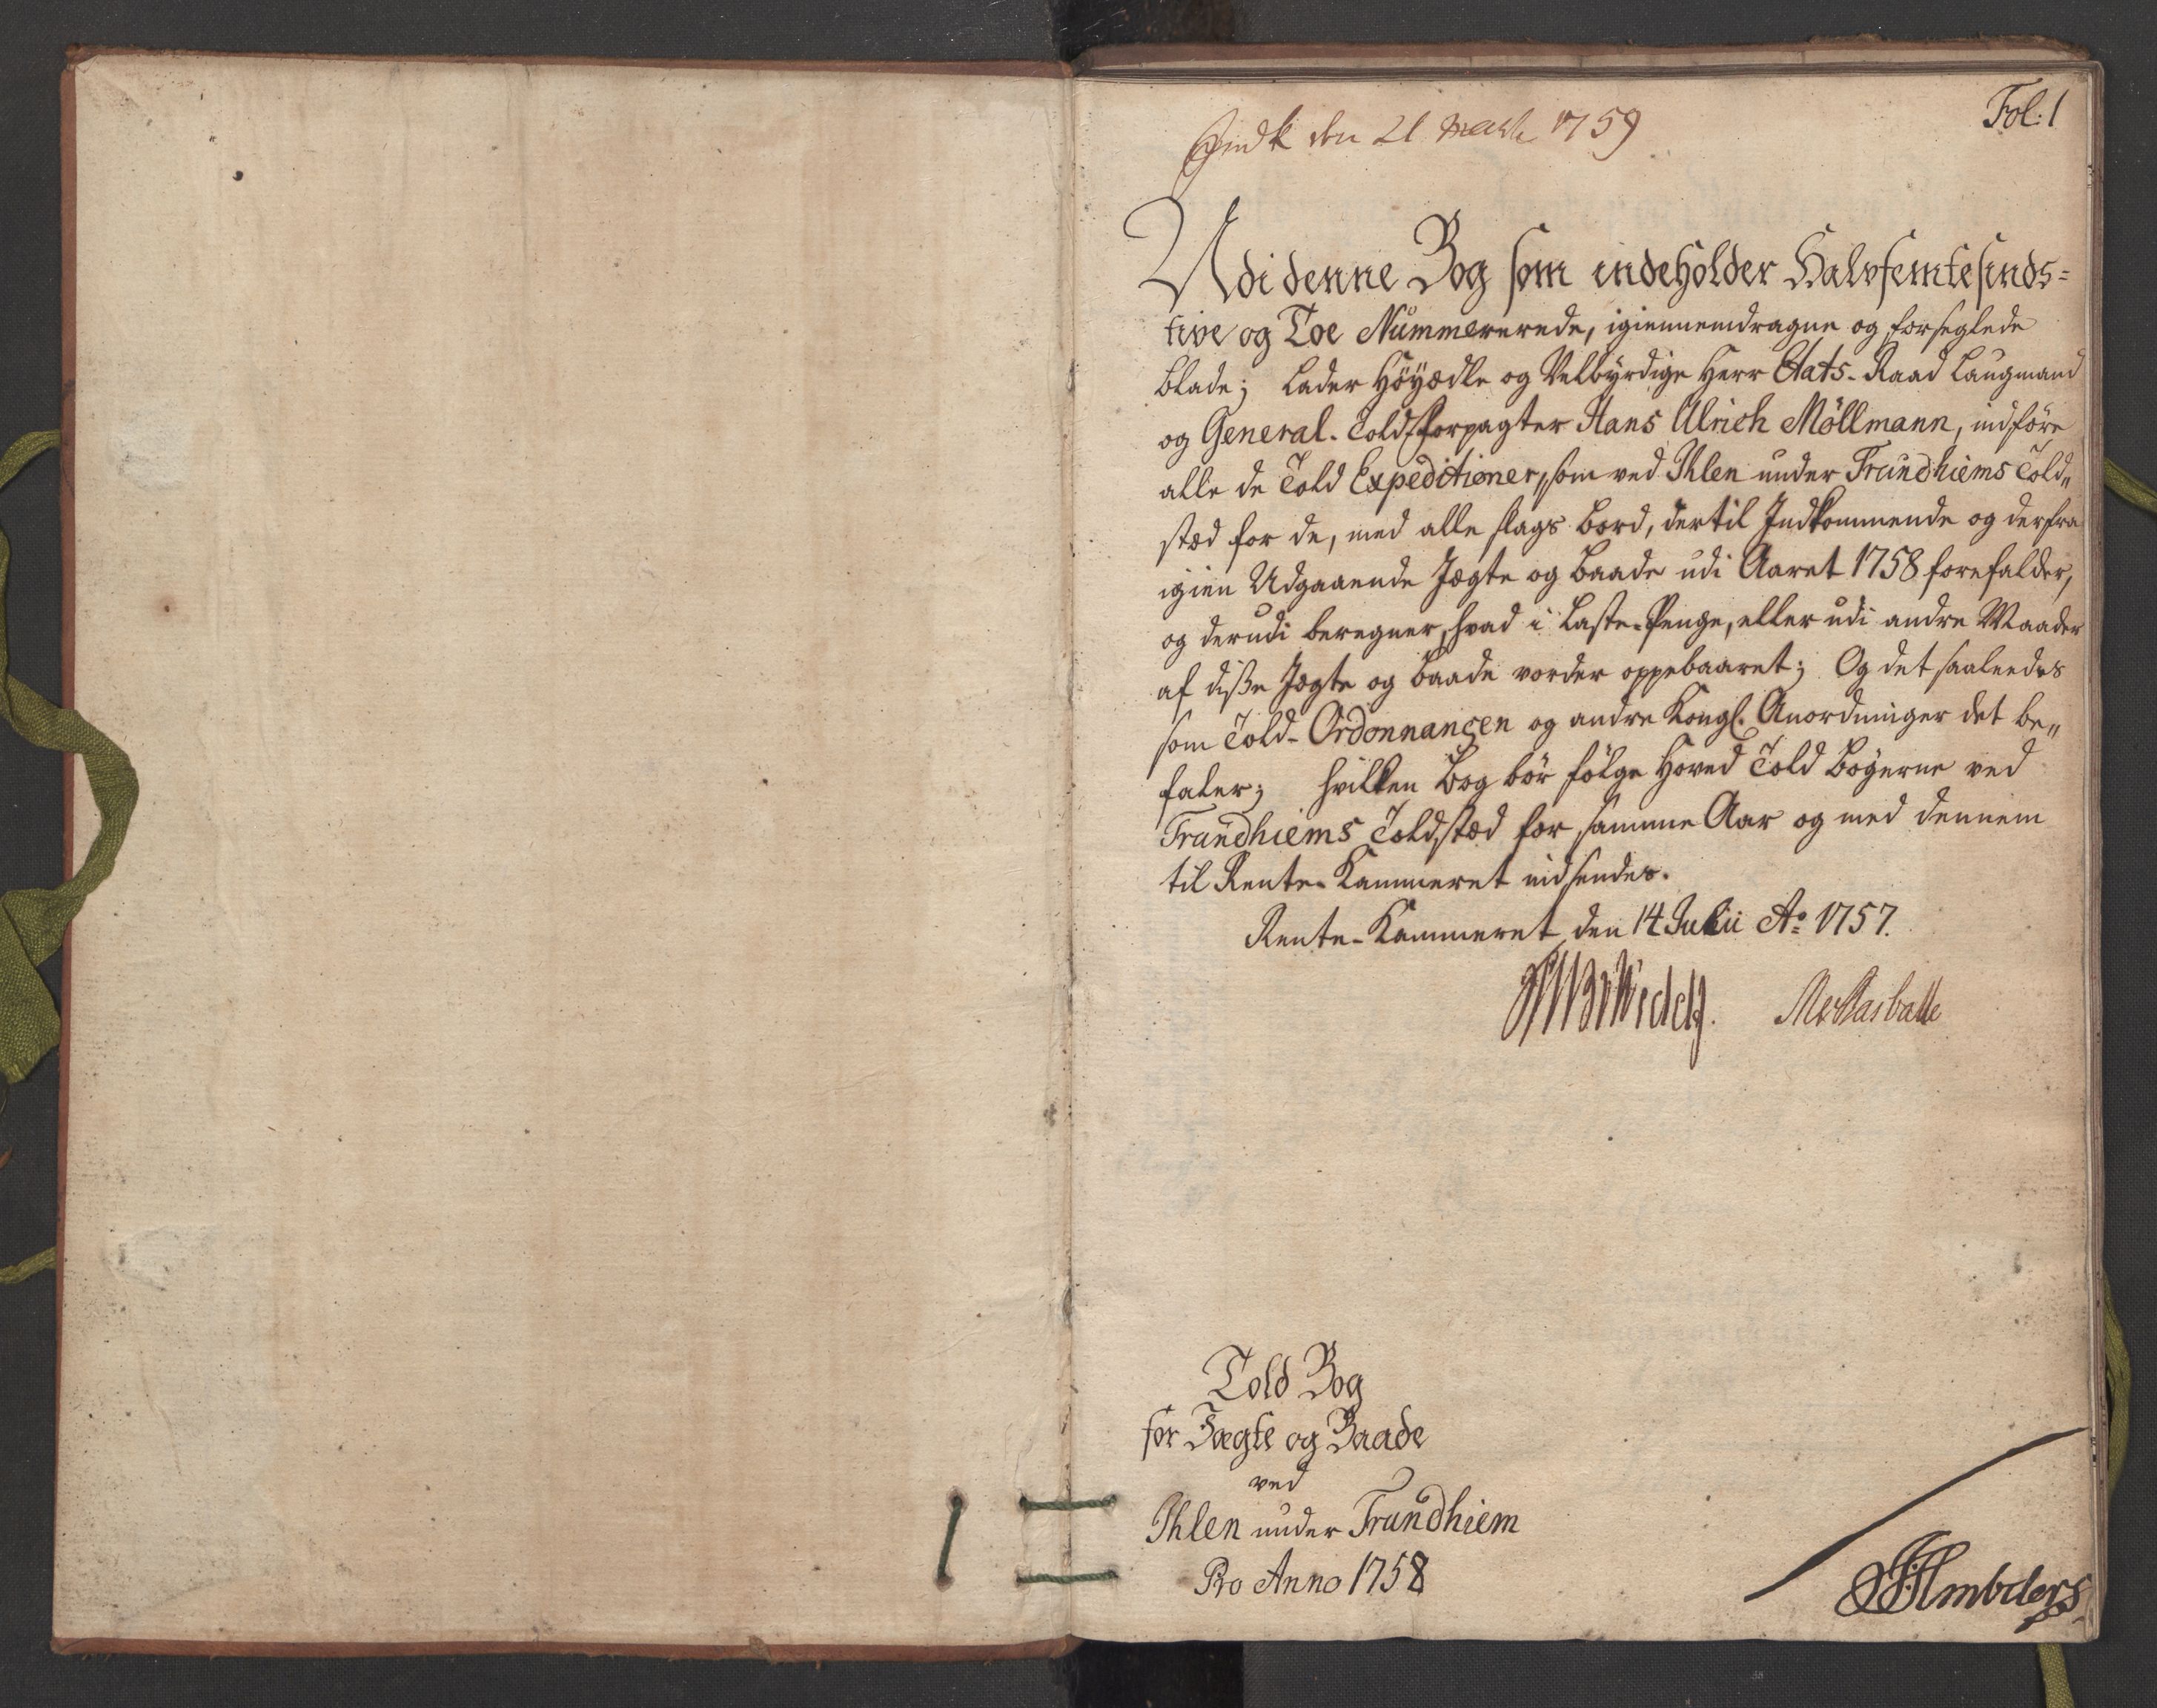 Fol: 1
Indk den 21 Martii 1759
Udi denne Bog som indeholder Halvfemtesinds=
tive og Toe Nummererede, igiennemdragne og forseglede
blade; Lader Höyædle og Velbÿrdige Herr Etats-Raad Laugmand
og General-Told-Forpagter Hans Ulrich Möllmann, indföre
alle de Told Expeditioner, som ved Ihlen under Trundhiems Told„
stæd for de, med alle slags Bord, dertil Indkommende og derfra
igien Udgaaende Jægte og Baade udi Aaret 1758 forefalder,
og derudi beregner, hvad i Laste-Penge, eller udi andre Maader
af diße Jægte og Baade vorder oppebaaret; Og det saaleedes
som Told-Ordonnancen og andre Kongl. Anordninger det be„
faler; hvilken Bog bör fölge Hoved Told Bögerne ved
Trundhiems Toldstæd for samme Aar og med dennem
til Rente-Kammeret indsendes.
Rente-Kammeret den 14 Julii Ao 1757.
Told Bog
for Jægte og Baade
ved
Ihlen under Trundhiem
Pro Anno 1758